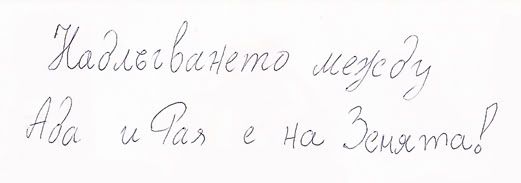 Надлъгването между
Ада и Рая е на Земята!